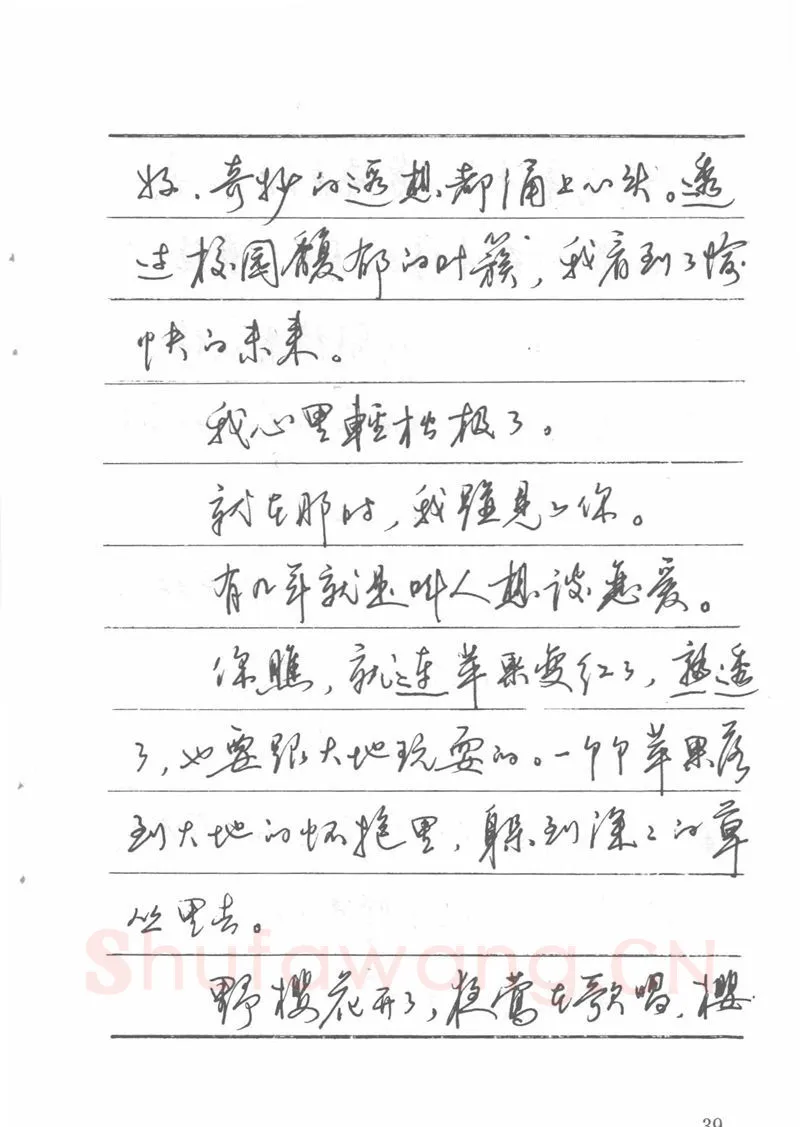 好、奇妙的遐想都涌上心头。透
过校园馥郁的叶簇，我看到了愉
快的未来。
我心里輕松极了。
就在那时，我碰見了你。
有几年就是叫人想谈恋爱。
你瞧，就连苹果变红了，熟透
了，也要跟大地玩耍的。一个个苹果落
到大地的怀抱里，躲到深深的草
丛里去。
野櫻花开了，夜莺在歌唱，櫻
Shufawang.CN
39